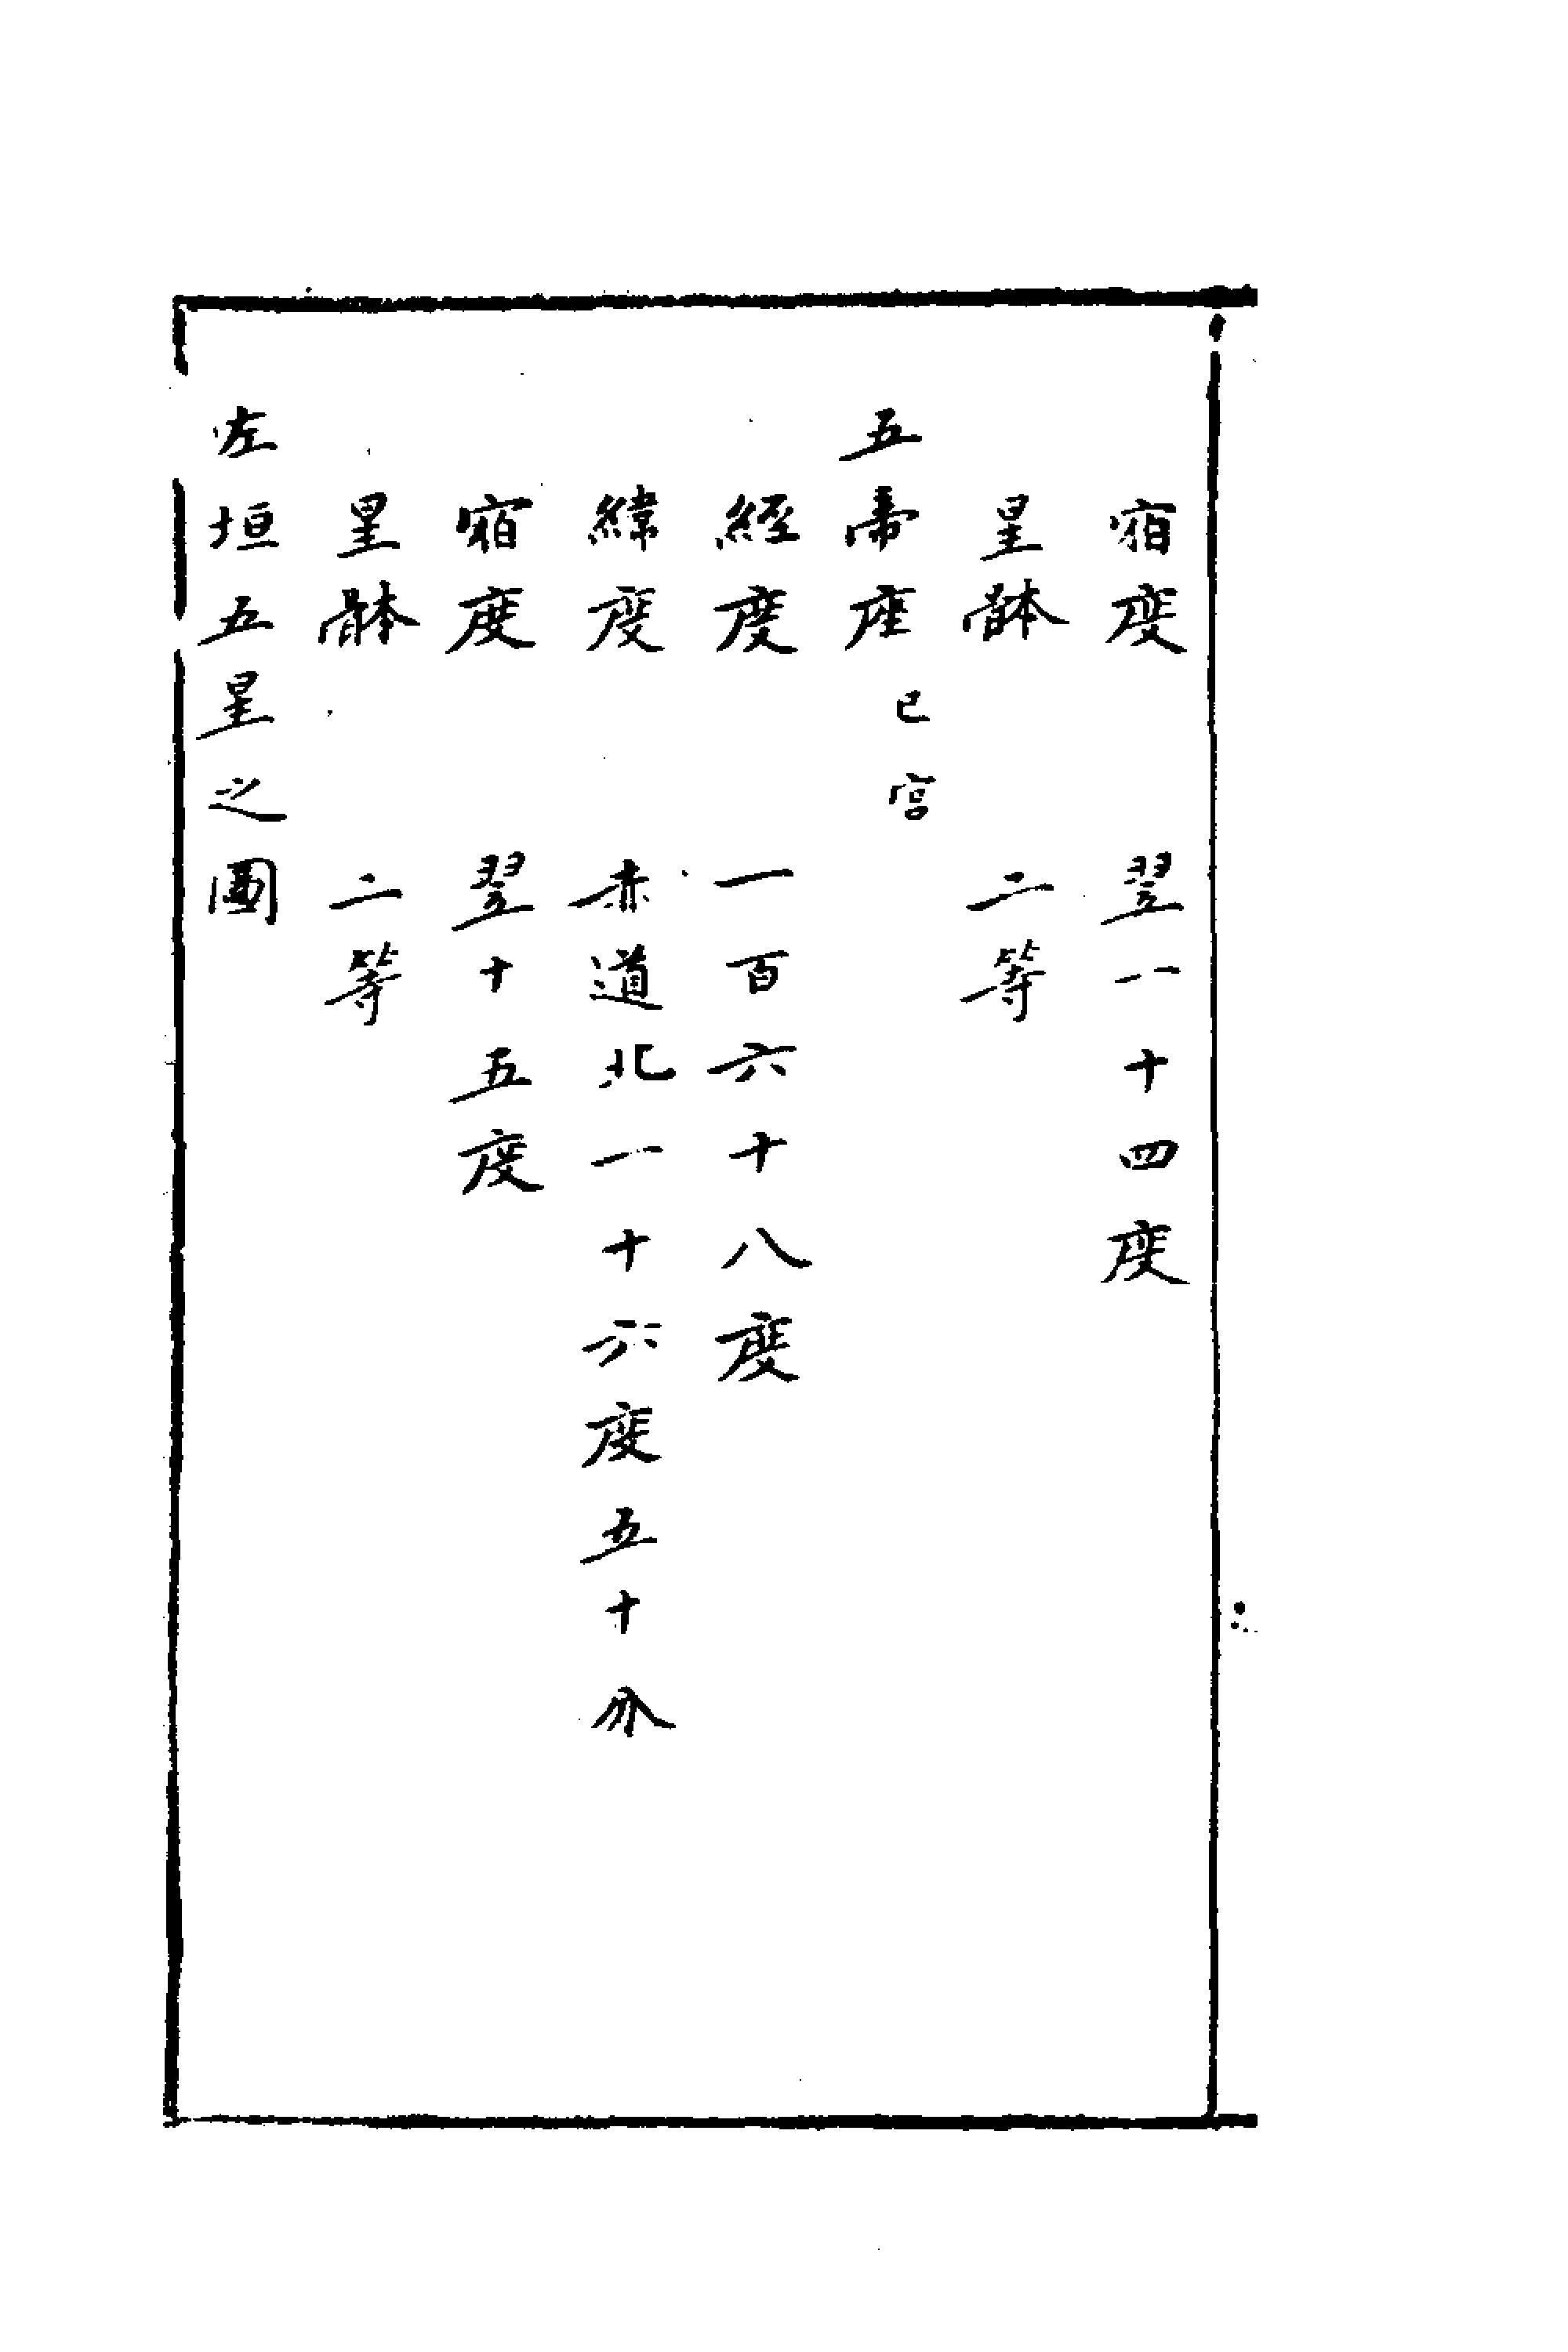 宿度　翌一十四度
星躰　二等
五帝座巳宫
經度　一百六十八度
緯度　赤道北一十六度五十分
宿度　翌十五度
星躰　二等
左垣五星之圖